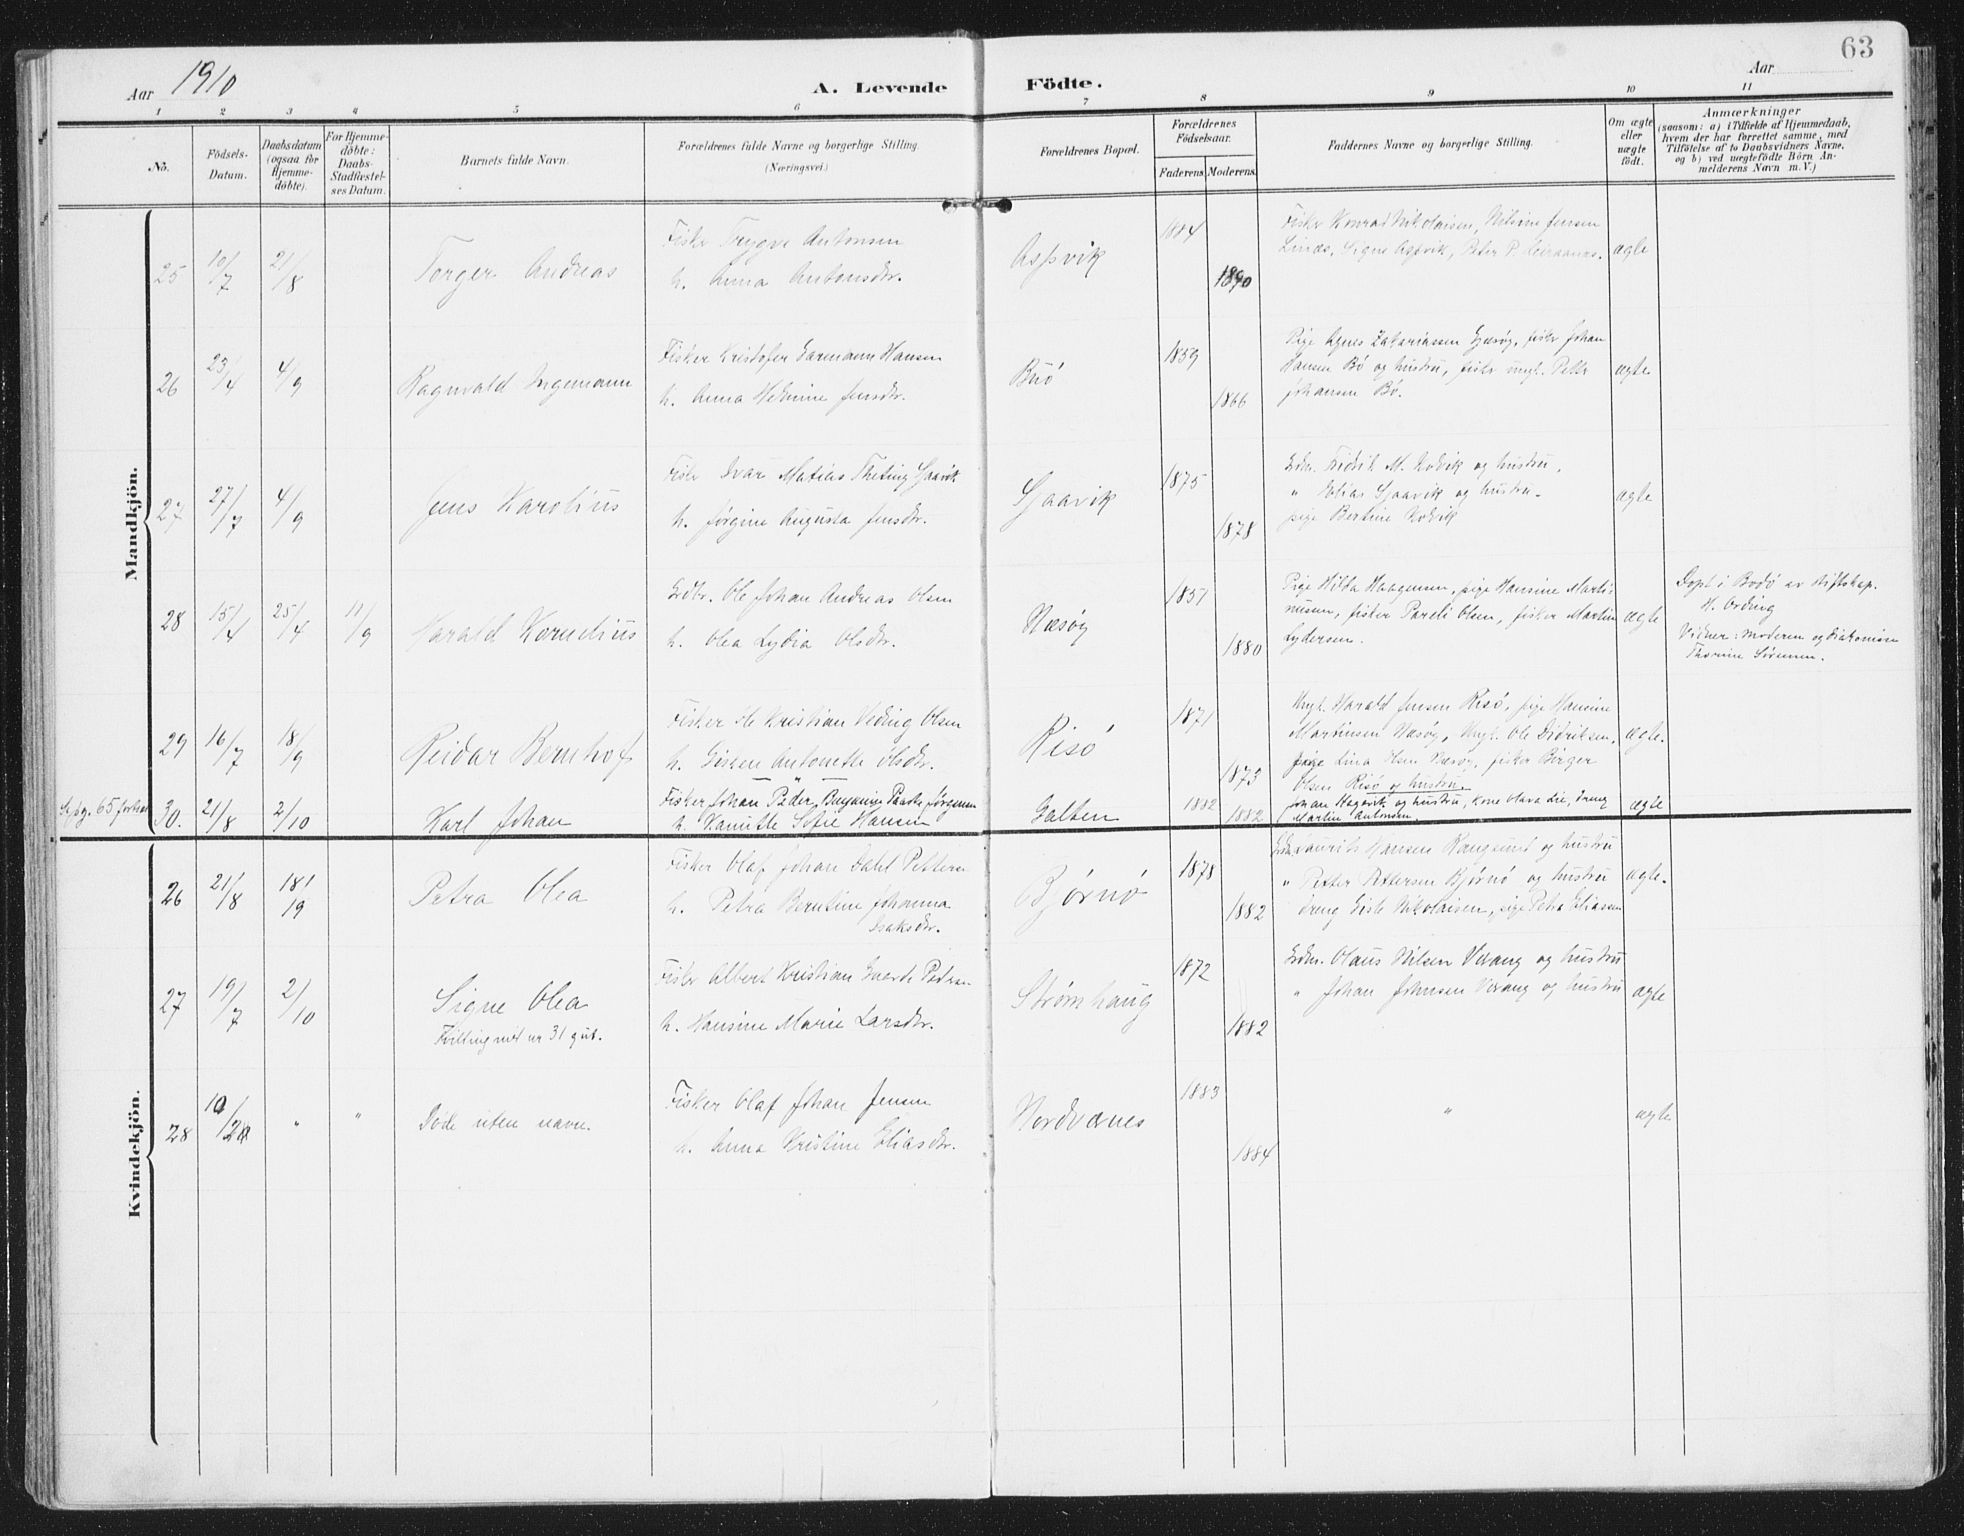 63
Aar 1910
A. Levende Födte.
Aar
1 2 3 4 5 6 7 8 9 10 11
No.
Födsels-
Datum.
Daabsdatum
(ogsaa for
Hjemme-
döbte).
For Hjemme-
döbte:
Daabs-
Stadfæstel-
ses Datum.
Barnets fulde Navn.
Forældrenes fulde Navne og borgerlige Stilling.
(Næringsvei.)
Forældrenes Bopæl.
Forældrenes
Födselsaar.
Faderens. Moderens.
Faddernes Navne og borgerlige Stilling.
Om ægte
eller
uægte
födt.
Anmærkninger
(saasom: a) i Tilfælde af Hjemmedaab,
hvem der har forrettet samme, med
Tilföielse af to Daabsvidners Navne,
og b) ved uægtefödte Börn An-
melderens Navn m. V.)
Mandkjön.
25 10/7 21/8 Torger Andreas
Fisker Trygve Antonsen
h. Anna Antonsdtr.
Aspvik 1884 1890
Fisker Konrad Nikolaisen, Nilsine Jensen
Linæs, Signe Aspvik, Peter P. ægte
26 23/4 4/9 Ragnvald Ingemann
Fisker Kristofer Garmann Hansen
h. Anna Hedvine Jensdtr.
Buö 1859 1866
Pige Agnes Zakariassen Gjæsøy, fisker Johan
Hansen Bö og hustru, fisker ungk. Petter
Johansen Bö. ægte
27 27/7 4/9 Jens Karolius
Fisker Ivar Matias Theting Sjaavik
h. Jørgine Augusta Jensdtr.
Sjaavik 1875 1878
Gdbr. Fredrik M. Nodvik og hustru,
" Elias Sjaavik og hustru,
pige Bertine Nodvik ægte
28 15/4 25/4 11/9 Harald Kornelius
Gdbr. Ole Johan Andreas Olsen
h. Olea Lydia Olsdtr.
Næsøy 1857 1880
Pige Hilda Haagensen, pige Hansine Marti-
nusen, fisker Pareli Olsen, fisker Martin
Lydersen. ægte
Døpt i Bodö av stiftskap.
H. Ording
Vidner: moderen og diakonisse
Thomine Sørensen.
29 16/7 18/9 Reidar Bernhof
Fisker Ole Kristian Veding Olsen
h. Gisken Antonette Olsdtr.
Risö 1871 1873
Ungk. Harald Jensen Risö, pige Hansine
Martinsen Næsøy, Ungk. Ole Didriksen,
pige Lina Olsen Næsøy, fisker Birger
Olsen Risö og hustru. ægte.
30. 21/8 2/10 Karl Johan
Fisker Johan Peder Jørgensen
h. Kanutte Sofie Hansen
Galten 1882 1882
Johan Hagevik og hustru, kone Olava Lie, dreng
Martin Antonsen. ægte
Kvindekjön.
26 21/8 18/9 Petra Olea
Fisker Olaf Johan Dahl Pettersen
h. Petra Berntine Johanna
Isaksdtr.
Bjørnö 1878 1882
Gdbr. Laurits Hansen Rangsund og hustru
" Petter Pettersen Bjørnö og hustru
dreng Gisle Nikolaisen, pige Petra Eliassen ægte.
27 19/7 2/10 Signe Olea
Tvilling med nr 31 gut.
Fisker Albert Kristian Evardt Pedersen
h. Hansine Marie Larsdtr.
Strømhaug 1872 1882
Gdbr. Olaus Nilsen Værang og hustru
" Johan Johnsen Værang og hustru ægte
28 " " Døde uten navn.
Fisker Olaf Johan Jensen
h. Anna Kristine Eliasdtr.
Nordværnes 1883 1884 " ægte